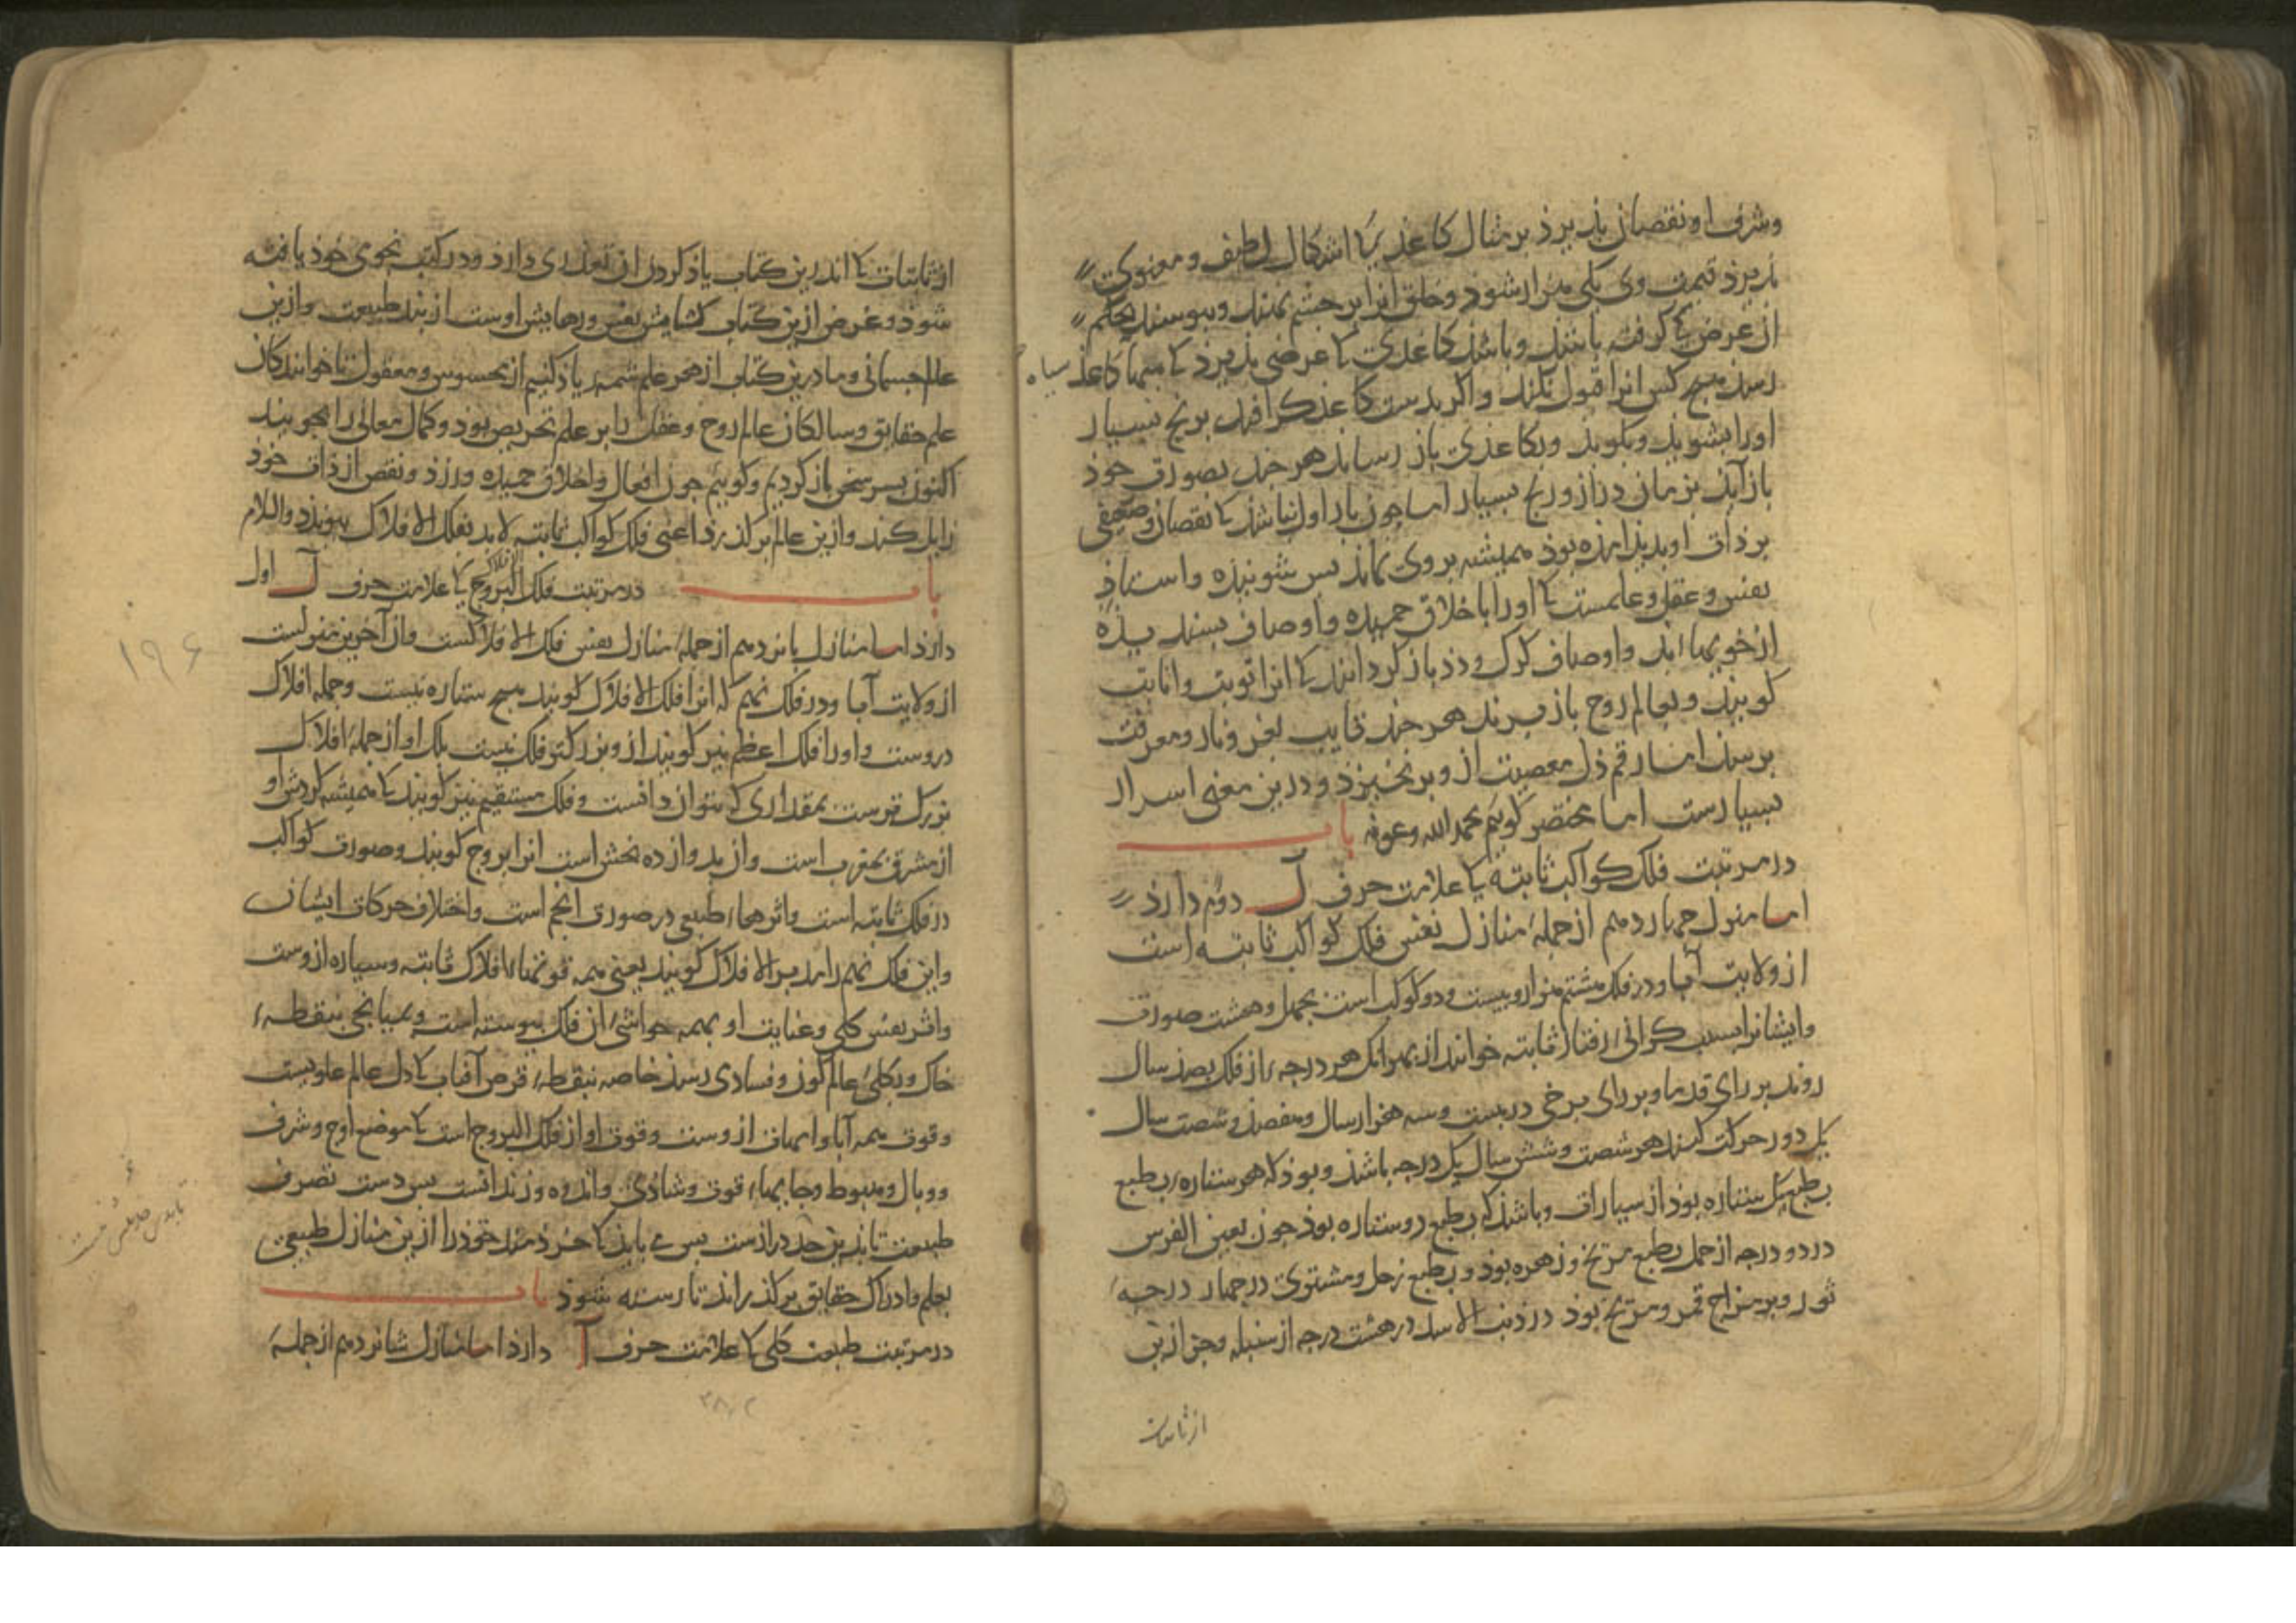 وشرف او نقصان پذیرد بر مثال کاغذی کا اشکال لطیف و معنوی
پذیرد قیمت وی یکی هزار شود و خلق آنرا بر چشم نهند و ببوسند بحکم
از عرض کا گرفته باشد و باشد کاغدی کا عرضی پذیرد کا سیاه
رسد هیچ کس آنرا قبول نکند و اگر بدست کاغذگر افتد برنج بسیار
اورا بشوید و بکوبد و بکاغذی باز رساند هر چند بصورت خود
باز آید بزمان دراز و رنج بسیار اما چون بار اول نباشد کا نقصان وضعیفی
بر ذات او پدیذ آمذه بوذ همیشه بر وی بماند بس شوینده و استاذ
نفس و عقل و علمست کا اورا باخلاق حمیده و اوصاف پسندیده
از خوی بهایم و اوصاف گرگ و دد باز گردانند کا آنرا توبت و انابت
گویند و بعالم روح باز برند هر چند تایب بعز و ناز و معرفت
برسد اما رقم ذل معصیت از و بر نخیزد و درین معنی اسرار
بسیارست اما مختصر گوئیم بحمد الله وعونه باب
در مرتبت فلک کواکب ثابته کا علامت حرف ل دوم دارذ
اما منزل چهاردهم از جملهٔ منازل نفس فلک کواکب ثابته است
از ولایت آبا و در فلک هشتم هزار و بیست و دو کوکب است بچهل و هشت صورت
وایشانرا بسبب گرانی رفتار ثابته خوانند از بهر آنک هر درجهٔ از فلک بصذ سال
روند بر رای قدما و بر رای برخی در بیست و سه هزار سال و هفصذ و شصت سال
یک دور حرکت کنند هر شصت و شش سال یک درجه باشذ و بوذ که هر ستاره بطبع
بطبع یک ستاره بوذ از سیارات و باشذ که بطبع دو ستاره بوذ چون نعین الفرس
در دو درجه از حمل بطبع مریخ و زهره بوذ و بطبع زحل و مشتری در چهار درجهٔ
ثور و بر مزاج قمر و مریخ بوذ در ذنب الاسد در هشت درجه از سنبله و جز ازین
از ثابتات
از ثابتات کا اندرین کتاب یاذ کردن آن تعذری دارذ و در کتب نجومی خوذ یافته
شوذ و غرض ازین کتاب گشایش نفس و رهایش اوست از بند طبیعت و ازین
عالم جسمانی و ما درین کتاب از هر علم شمه‌ٔ یاذ کنیم از محسوس و معقول تا خوانندگان
علم حقایق و سالکان عالم روح و عقل را بر علم تحریص بود و کمال معالی را بجویند
اکنون بسر سخن باز گردیم و گوئیم چون افعال و اخلاق حمیده ورزد و نقص از ذات خوذ
زایل کند و ازین عالم بر گذرذ اعنی فلک کواکب ثابته لابد بفلک الافلاک پیوندد والسلام
باب در مرتبت فلک البروج کا علامت حرف ل اول
الافلاک
دارذ اما منازل پانزدهم از جملهٔ منازل نفس فلک الافلاکست و آن آخرین منزلست
از ولایت آبا و در فلک نهم که آنرا فلک الافلاک گویند هیچ ستاره نیست و جمله افلاک
دروست و اورا فلک اعظم نیز گویند از و بزرگتر فلک نیست بلک او از جملهٔ افلاک
بزرگ ترست بمقداری که بتوان دانست و فلک مستقیم نیز گویند کا همیشه گردش او
از مشرق بمغرب است و آن بدوازده بخش است آنرا بروج گویند و صورت کواکب
در فلک ثابته است و اثرهاء طبعی در صورت انجم است و اختلاف حرکات ایشان
و این فلک نهم را مدبر الافلاک گویند یعنی همه قوتهاء افلاک ثابته و سیاره از وست
و اثر نفس کلی و عنایت او بهمه حواشیٔ آن فلک پیوسته است و بمیانجی بنقطهٔ
خاک و بکلیٔ عالم کون و فسادی رسذ خاصه بنقطهٔ قرص آفتاب کا دل عالم علویست
وقوت همه آبا و امهات از وست و قوت او از فلک البروج است کا موضع اوج و شرف
و وبال و هبوط و جایهاء قوت و شاذی و اندوه و زندانست بس دست تصرف
طبیعت تا بدین حد درازست بس می باید کا خردمند خوذ را ازین منازل طبیعی
بعلم و ادراک حقایق بر گذراند تا رسته شوذ باب
در مرتبت طبیعت کلی کا علامت حرف آ دارذ اما منازل شانزدهم از جملهٔ
۱۹۶